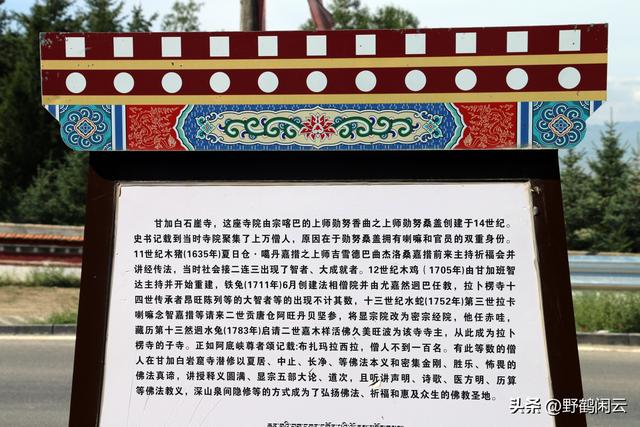 甘加白石崖寺，这座寺院由宗喀巴的上师勋努香曲之上师勋努桑盖创建于14世纪。
史书记载到当时寺院聚集了上万僧人，原因在于勋努桑盖拥有喇嘛和官员的双重身份。
11世纪木猪(1635年)夏日仓·噶丹嘉措之上师吉雪德巴曲杰洛桑嘉措前来主持祈福会并
讲经传法，当时社会接二连三出现了智者、大成就者。12世纪木鸡（1705年)由甘加班智
达主持并开始重建，铁兔(1711年)6月创建法相僧院并由尤嘉然迥巴任教，拉卜楞寺十
四世传承者昂旺陈列等的大智者等的出现不计其数，十三世纪水蛇(1752年)第三世拉卡
喇嘛念智嘉措等请来二世贡唐仓阿旺丹贝坚参，将显宗院改为密宗经院，他任赤哇，
藏历第十三然迥水兔(1783年)启请二世嘉木样活佛久美旺波为该寺寺主，从此成为拉卜
楞寺的子寺。正如阿底峡尊者颂记载:布扎玛拉西拉，僧人不到一百名。有此等数的僧
人在甘加白岩窟寺潜修以夏居、中止、长净、等佛法本义和密集金刚、胜乐、怖畏的
佛法真谛，讲授释义圆满、显宗五部大论、道次，且听讲声明、诗歌、医方明、历算
等佛法教义，深山泉间隐修等的方式成为了弘扬佛法、祈福和惠及众生的佛教圣地。
头条 @野鹤闲云